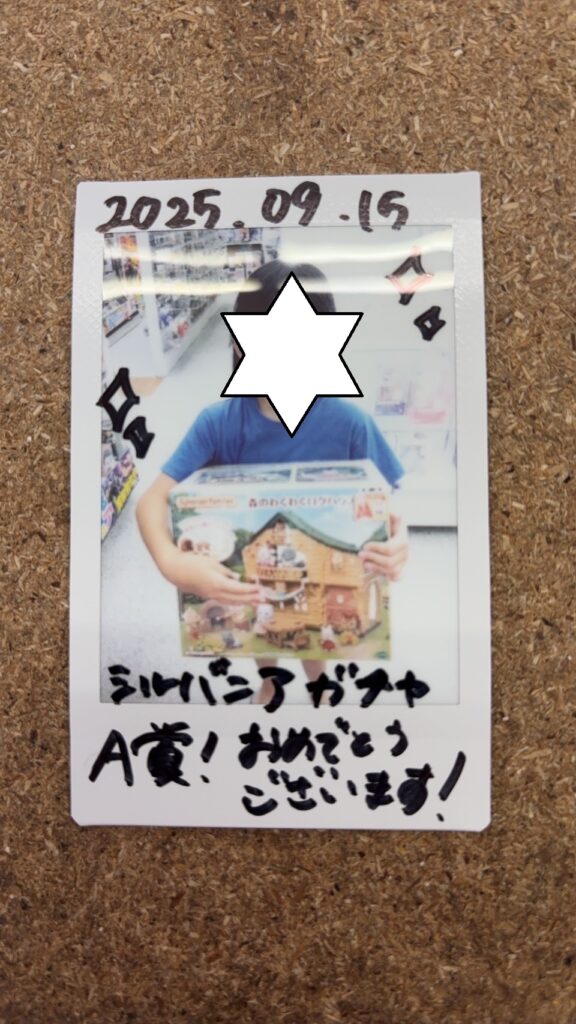 2025.09.15
Sylvanian Families
森のわくわくログハウス
シルバニアガチャ
A賞！おめでとう
ございます！